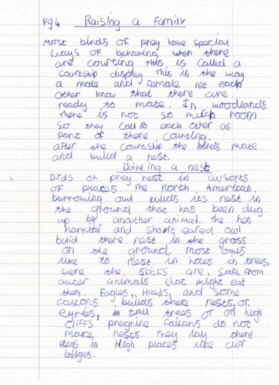 Pg 4 Raising a Family
Most birds of prey have special
ways of behaving when there
are courting this is called a
courship display this is the way
a male and female let each
other know that there are
ready to mate. In woodlands
there is not so much room
so they call to each other as
part of there courting.
after the courship the birds mate
and build a nest.
a nest
Birds of prey nest in all sorts
of places the north American
burrowing owl builds its nest in
the ground that has been dug
up by another animal the hen
harrier and short eared owl
build there nest in the grass
on the ground, most owls
like to nest in holes in trees
were the are safe from
outer animals that might eat
them Eagles, Hawks, and some
falcons builds there nests, or
Eyries, in tall trees or on high
cliffs peregrine falcons do not
make nests they lay there
eggs in high places like cliff
ledges.